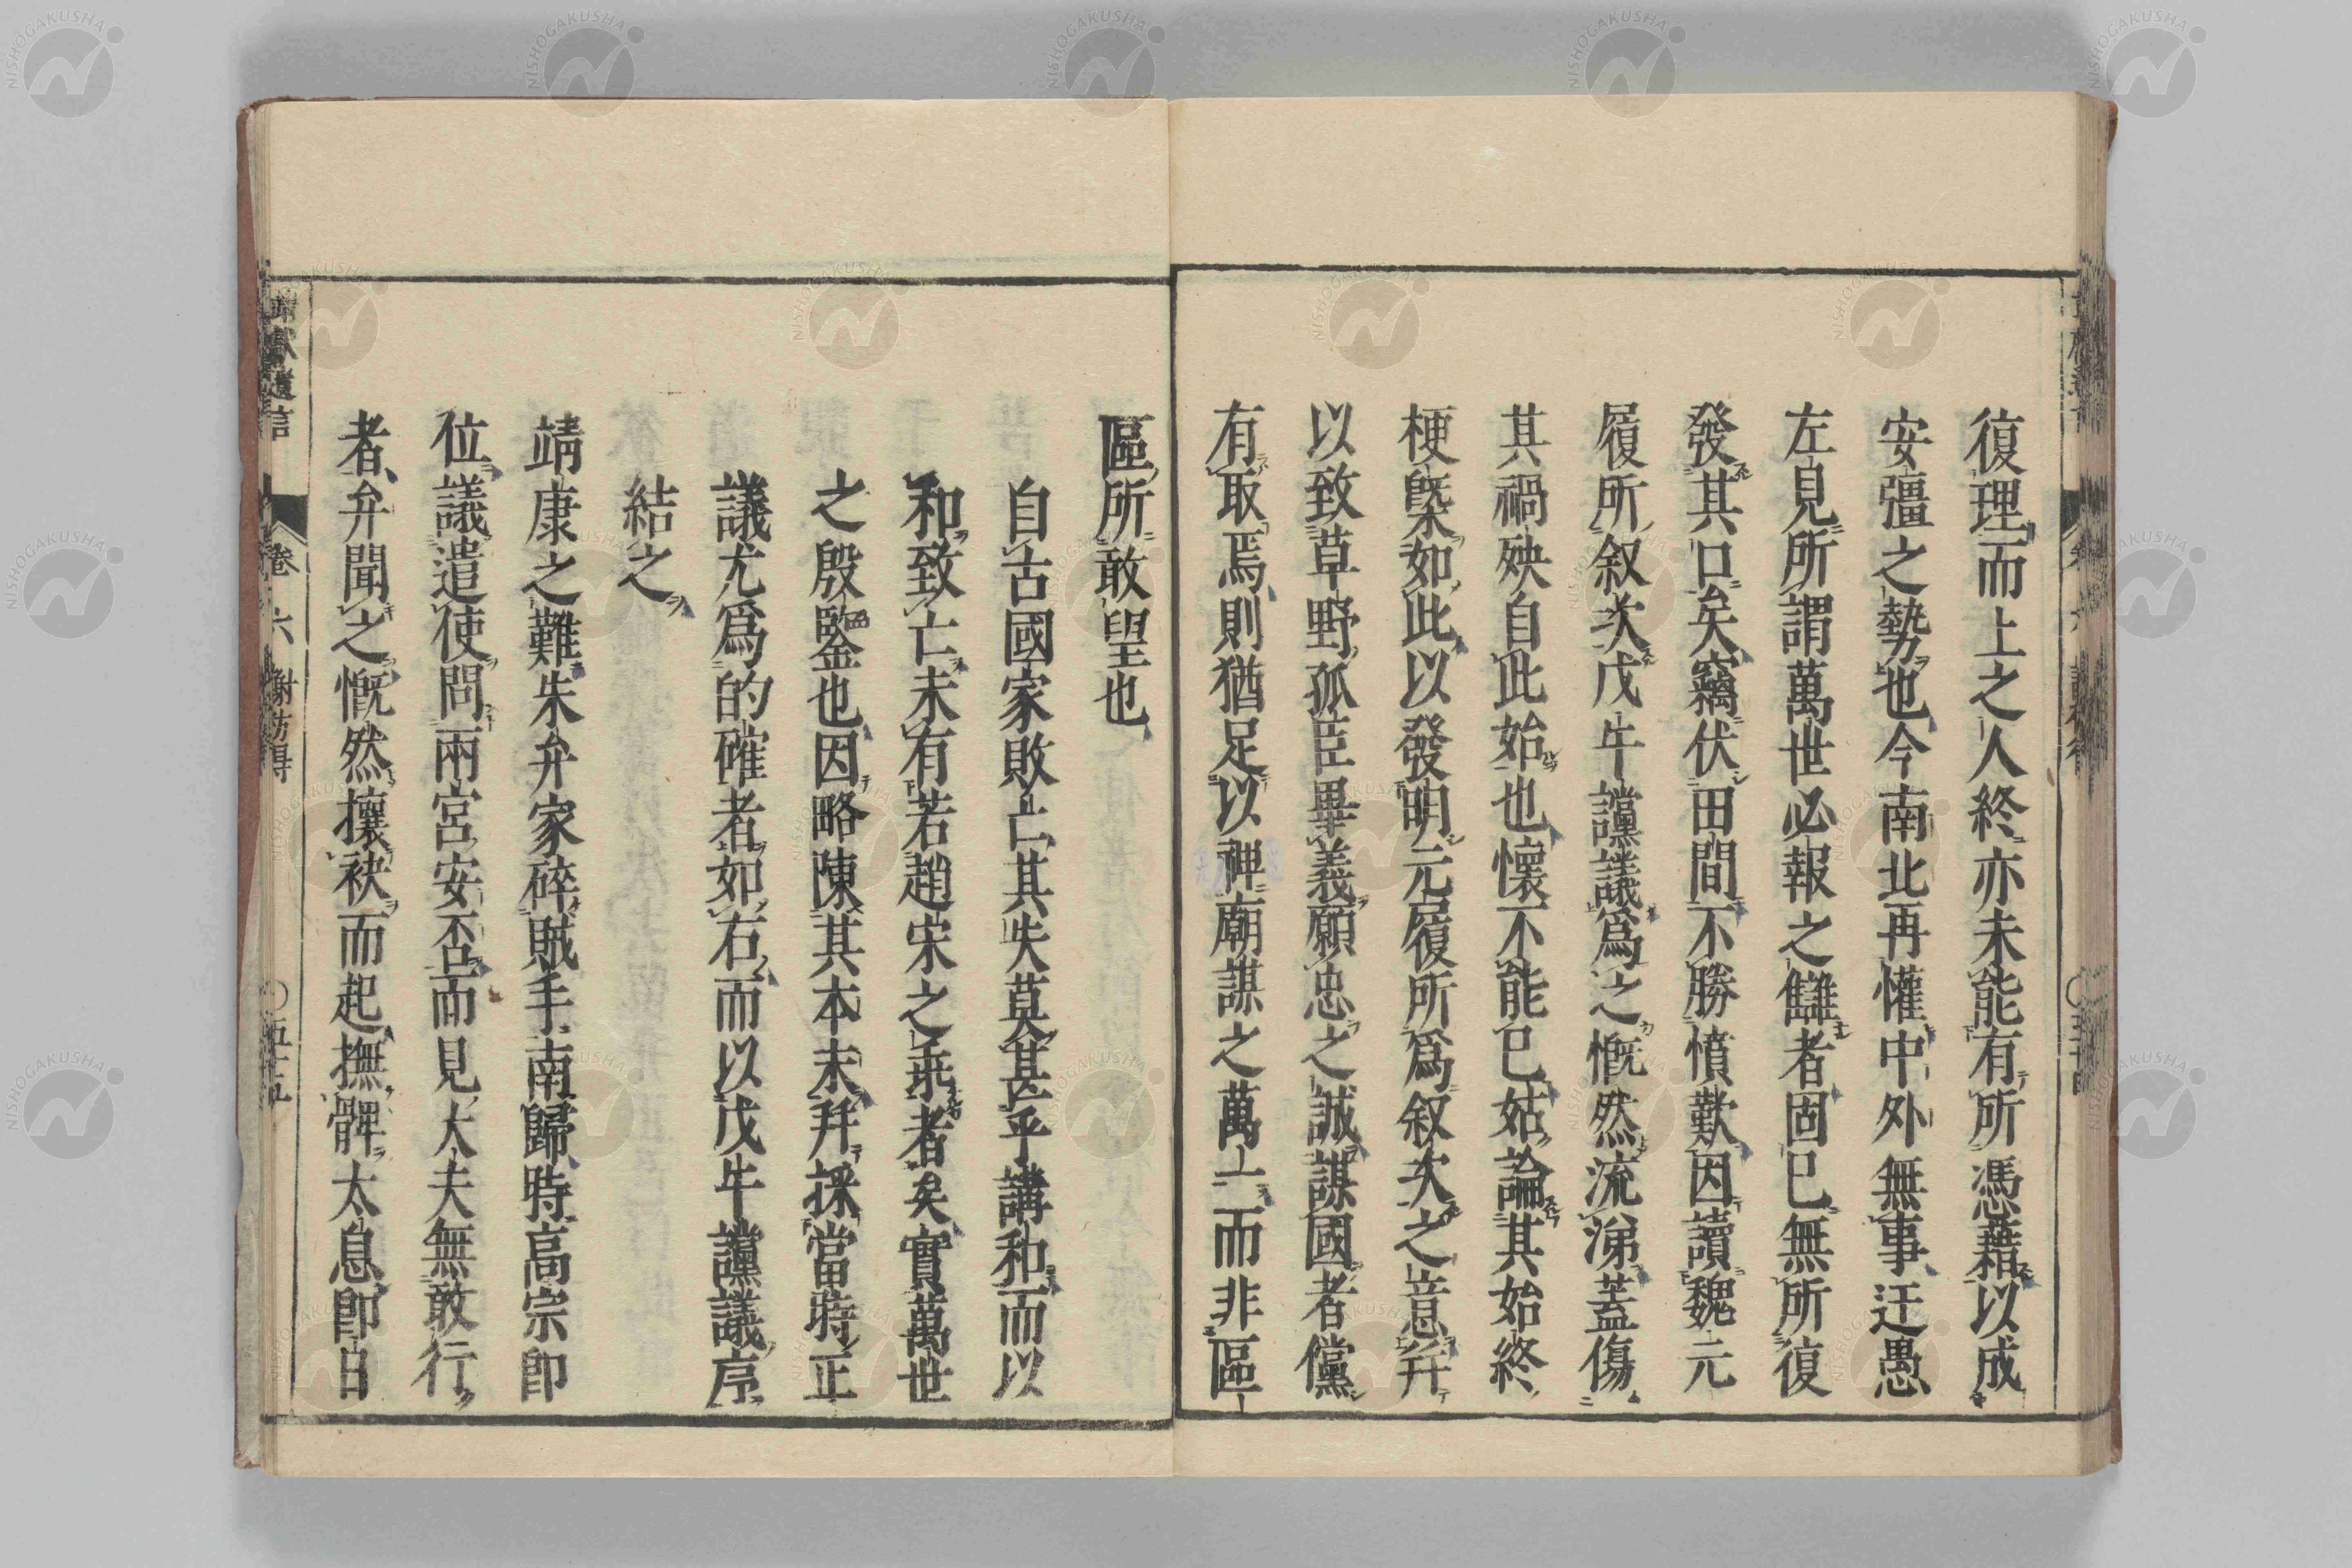 復理而上之人終亦未能有所憑藉以成
安彊之勢也今南北再懽中外無事迂愚
左見所謂萬世必報之讎者固已無所復
發其口矣竊伏田間不勝憤歎因讀魏元
履所叙次戊午讜議爲之慨然流涕蓋傷
其禍殃自此始也懷不能已姑論其始終
梗槩如此以發明元履所爲叙次之意幷
以致草野孤臣畢義願忠之誠謀國者儻
有取焉則猶足以裨廟謀之萬一而非區
區所敢望也
自古國家敗亡其失莫甚乎講和而以
和致亡未有若趙宋之乖者矣實萬世
之殷鑒也因略陳其本末幷採當時正
議尤爲的確者如右而以戊午讜議序
結之
靖康之難朱弁家碎賊手南歸時高宗卽
位議遣使問兩宮安否而見大夫無敢行
者弁聞之慨然攘袂而起撫髀太息卽白
靖獻遺言 卷六 謝枋得 〇五十五
NISHOGAKUSHA